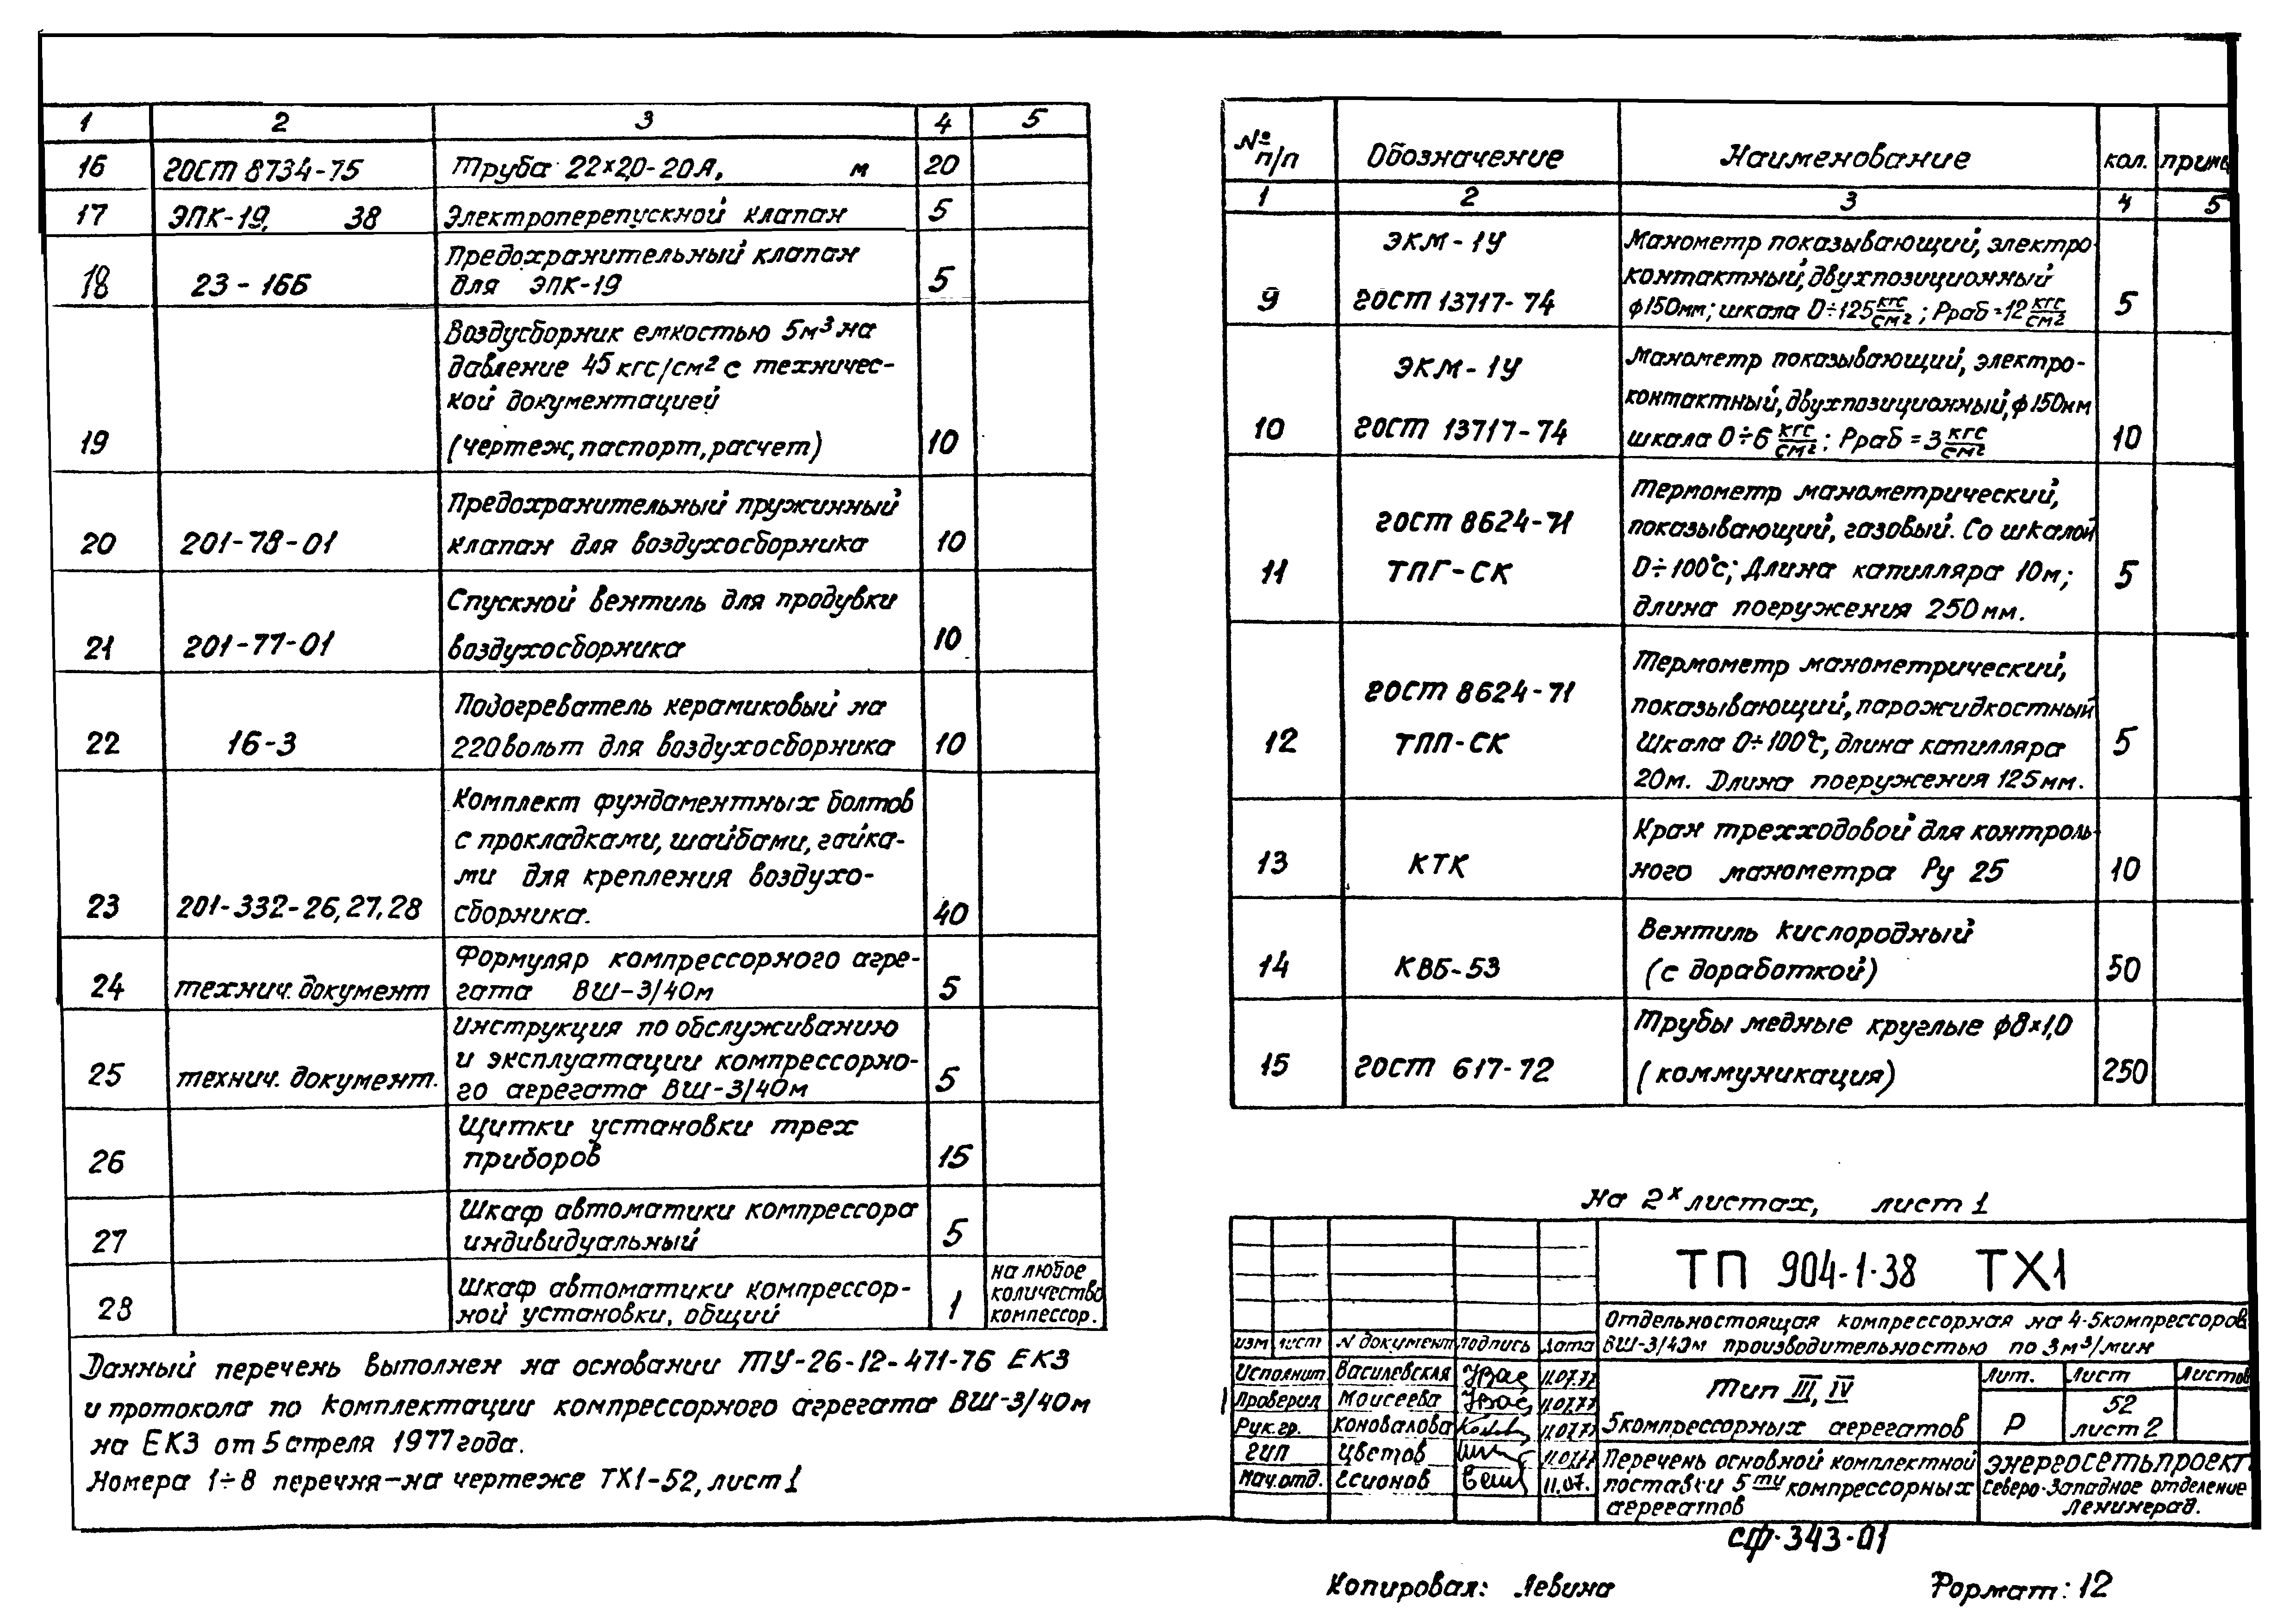 1 2 3 4 5
16 ГОСТ 8734-75 Труба 22×2,0-20А, м 20
17 ЭПК-19, 38 Электроперепускной клапан 5
Предохранительный клапан
18 23-16Б для ЭПК-19 5
Воздусборник емкостью 5м³ на
давление 45 кгс/см² с техничес-
кой документацией
19 (чертеж, паспорт, расчет) 10
Предохранительный пружинный
20 201-78-01 клапан для воздухосборника 10
Спускной вентиль для продувки
21 201-77-01 воздухосборника 10
Подогреватель керамиковый на
22 16-3 220 вольт для воздухосборника 10
Комплект фундаментных болтов
с прокладками, шайбами, гайка-
ми для крепления воздухо-
23 201-332-26,27,28 сборника. 40
Формуляр компрессорного агре-
24 технич. документ гата ВШ-3/40м 5
Инструкция по обслуживанию
и эксплуатации компрессорно-
25 технич. документ. го агрегата ВШ-3/40м 5
Щитки установки трех
26 приборов 15
Шкаф автоматики компрессора
27 индивидуальный 5
28 Шкаф автоматики компрессор-
ной установки, общий 1
на любое
количество
компессор.
Данный перечень выполнен на основании ТУ-26-12-471-76 ЕКЗ
и протокола по комплектации компрессорного агрегата ВШ-3/40м
на ЕКЗ от 5 апреля 1977 года.
Номера 1÷8 перечня-на чертеже ТХ1-52, лист 1
№ п/п Обозначение Наименование кол. прим
1 2 3 4 5
ЭКМ-1У Манометр показывающий, электро-
контактный, двухпозиционный
9 ГОСТ 13717-74 ф150мм; шкала 0÷125 кгс/см²; Рраб=12 кгс/см² 5
ЭКМ-1У Манометр показывающий, электро-
контактный, двухпозиционный, ф150мм
10 ГОСТ 13717-74 шкала 0÷6 кгс/см²; Рраб=3 кгс/см² 10
Термометр манометрический,
ГОСТ 8624-71 показывающий, газовый. Со шкалой
11 ТПГ-СК 0÷100°С; Длина капилляра 10м; 5
длина погружения 250мм.
Термометр манометрический,
ГОСТ 8624-71 показывающий, парожидкостный
12 ТПП-СК Шкала 0÷100°С, длина капилляра 5
20м. Длина погружения 125мм.
Кран трехходовой для контроль-
13 КТК ного манометра Ру 25 10
Вентиль кислородный
14 КВБ-53 (с доработкой) 50
Трубы медные круглые ф8×1,0
15 ГОСТ 617-72 (коммуникация) 250
На 2х листах, лист 1
ТП 904-1-38 ТХ1
Отдельностоящая компрессорная на 4-5 компрессоров
ВШ-3/40м производительностью по 3м³/мин
изм лист N документ подпись дата
Исполнит Василевская 11.07.77
Проверил Моисеева 11.07.77
Рук.гр. Коновалова 11.07.77
ГИП Цветов 11.07.77
Нач.отд. Есионов 11.07.
Тип III, IV
5 компрессорных агрегатов
Лит. Лист Листов
Р 52
лист 2
Перечень основной комплектной
поставки 5ти компрессорных
агрегатов
Энергосетьпроект
Северо-Западное отделение
Ленинград.
сф-343-01
Копировал: Левина Формат: 12